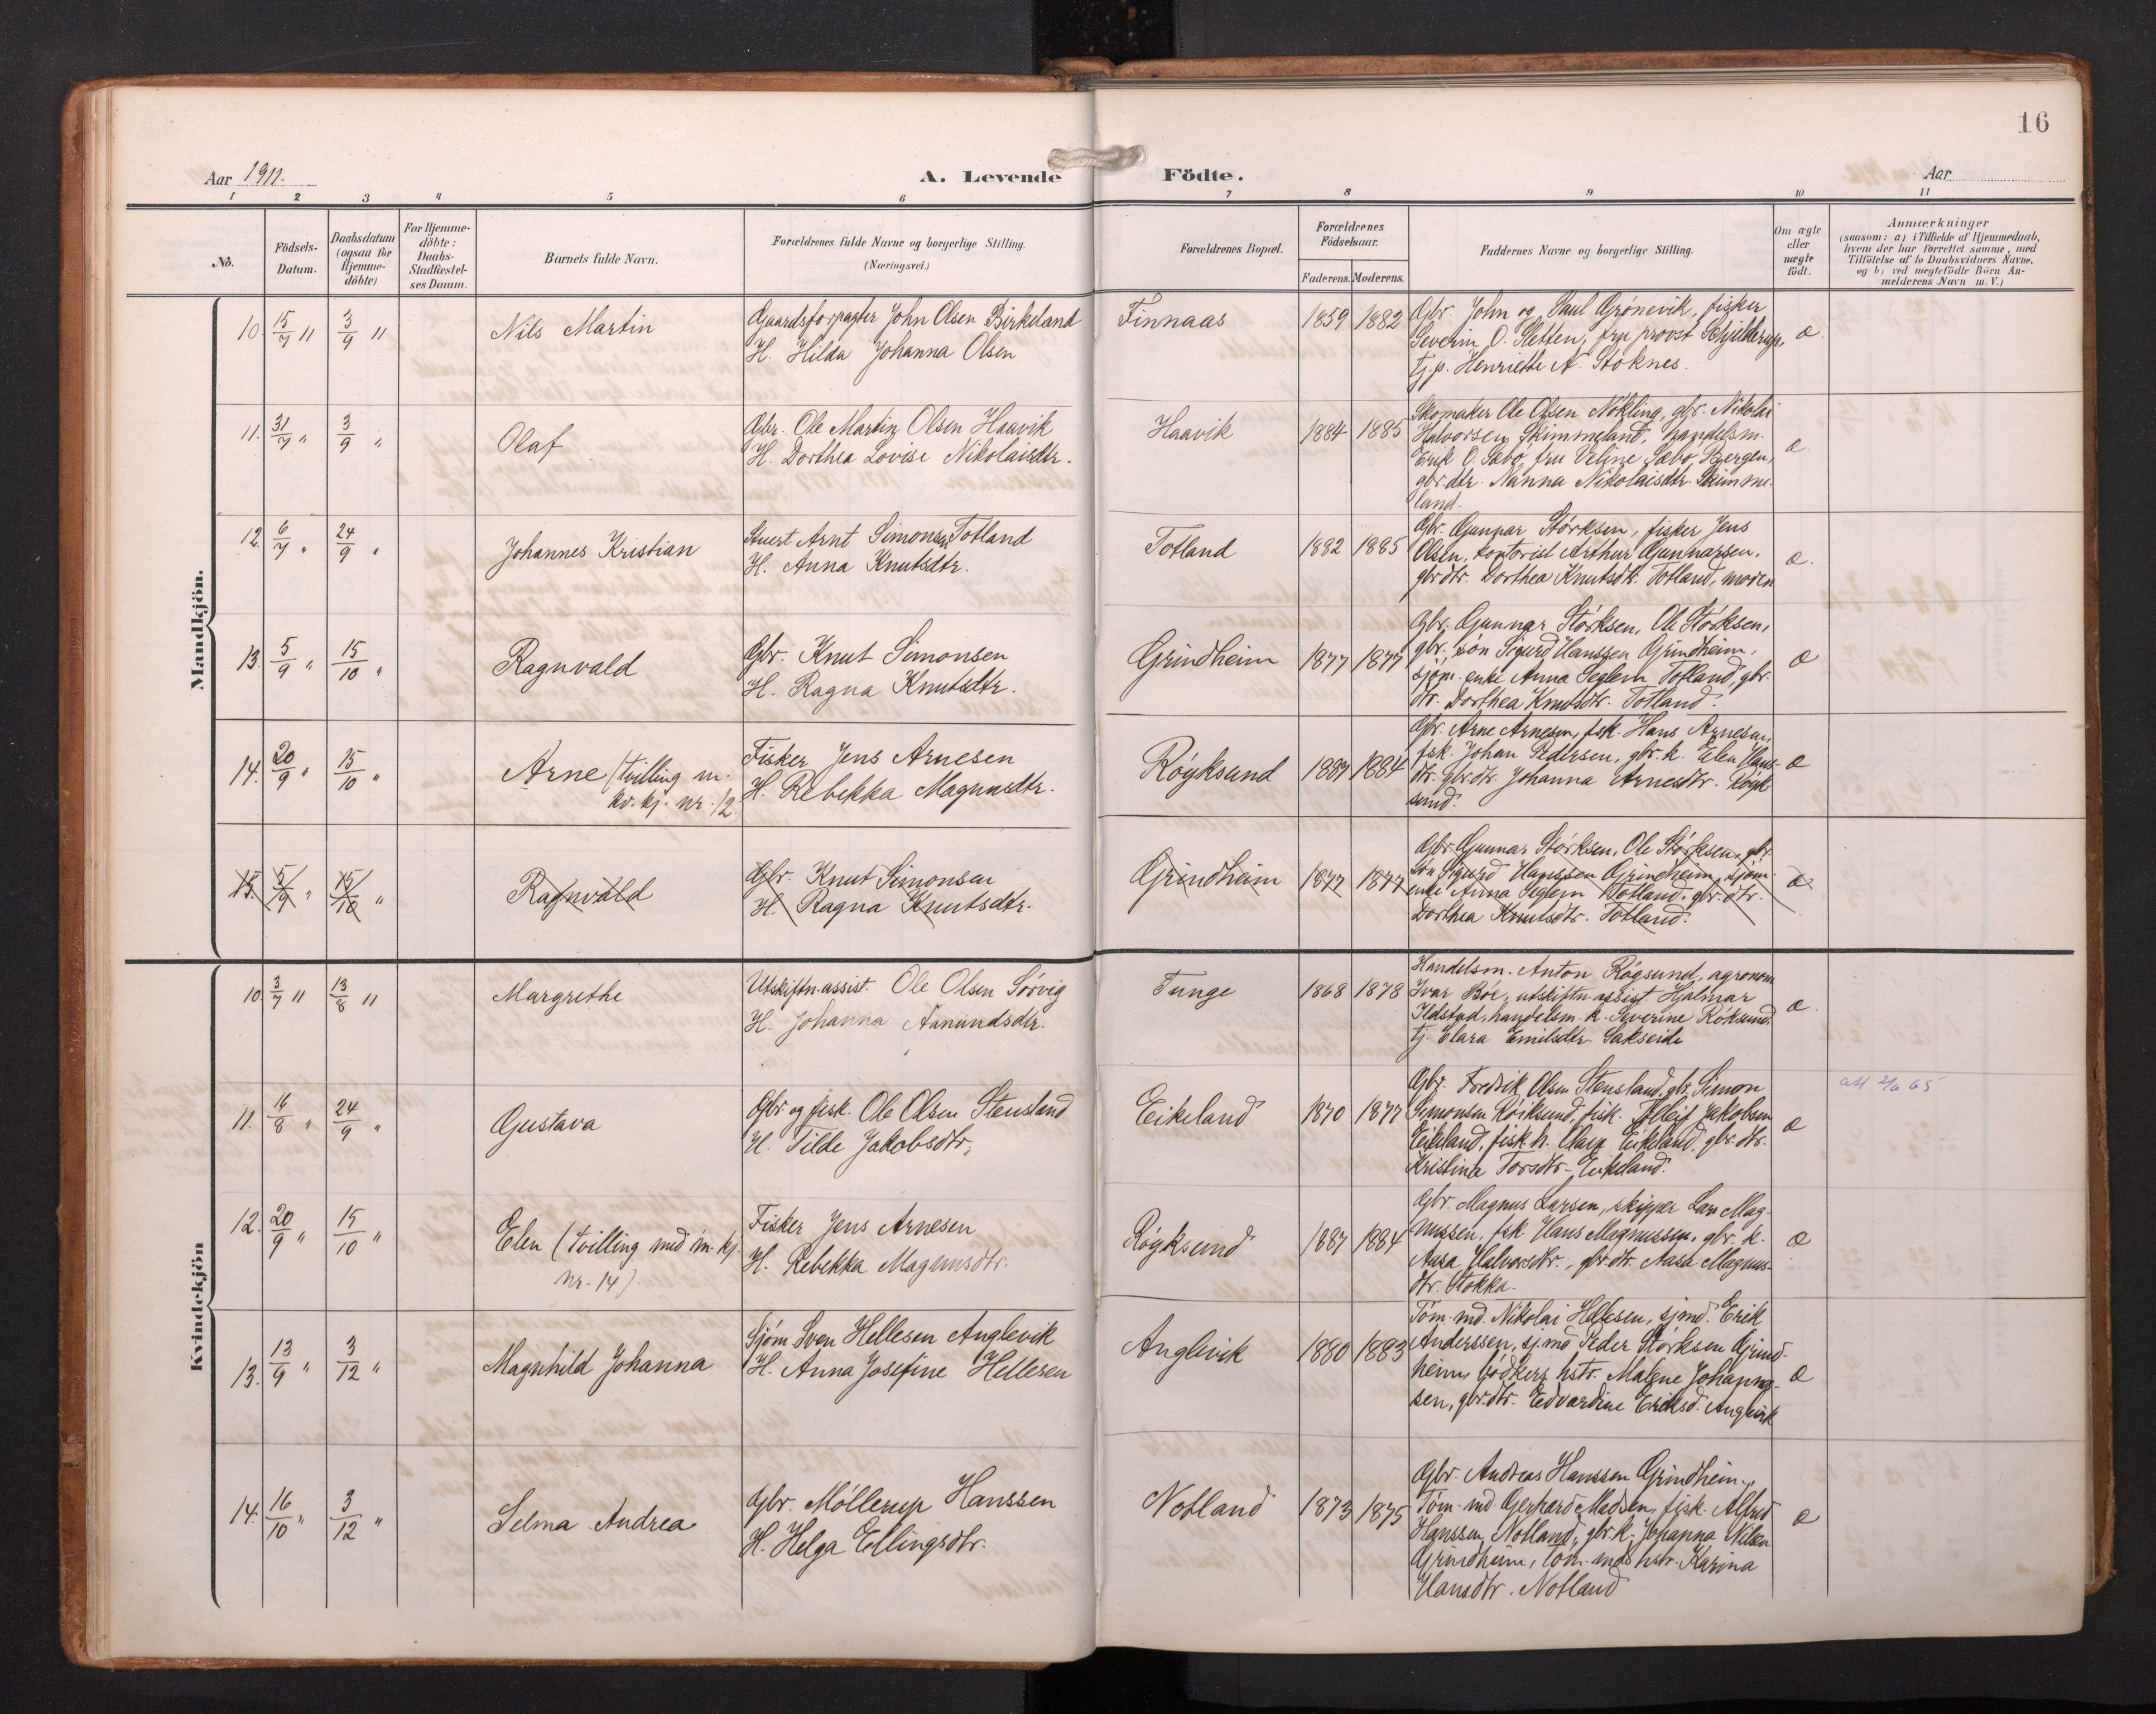 16
Aar 1911.
A. Levende Födte.
Aar
1 2 3 4 5 6 7 8 9 10 11
No.
Födsels-Datum.
Daabsdatum (ogsaa for Hjemme-döbte)
For Hjemme-döbte: Daabs-Stadfæstel-ses Datum.
Barnets fulde Navn.
Forældrenes fulde Navne og borgerlige Stilling.
(Næringsvei.)
Forældrenes Bopæl.
Forældrenes Födselsaar.
Faderens. Moderens.
Faddernes Navne og borgerlige Stilling.
Om ægte eller uægte födt.
Anmærkninger
(saasom: a) i Tilfælde af Hjemmedaab,
hvem der har forrettet samme, med
Tilföielse af to Daabsvidners Navne,
og b) ved uægtefödte Börn An-
melderens Navn m. V.)
Mandkjön.
10. 15/7 " 3/9 " Nils Martin
Gaardsforpagter John Olsen Birkeland
H. Hilda Johanna Olsen
Finnaas 1859 1882
Gbr. John og Paul Grønevik, fisker
Severin O. Sletten, fru provst Schjelderup,
tj. p. Henriette A. Stoknes.
æ.
11. 31/7 " 3/9 " Olaf
Gbr. Ole Martin Olsen Haavik
H. Dorthea Lovise Nikolaisdtr.
Haavik 1884 1885
Skomaker Ole Olsen Nøkling, gbr. Nikolai
Halvorsen Skimmeland, handelsm.
Erik O. Sæbø, fru Veline Sæbø, Bergen,
gbr dtr. Nanna Nikolaisdtr. Skimme-
land.
æ.
12. 6/7 " 24/9 " Johannes Kristian
Stuert Arnt Simonsen Totland
H. Anna Knutsdtr.
Totland 1882 1885
Gbr. Gunnar Størksen, fisker Jens
Olsen, kontorist Arthur Gunnarsen,
gbrdtr. Dorthea Knutsdtr. Totland, moren
æ.
13. 5/9 " 15/10 " Ragnvald
Gbr. Knut Simonsen
H. Ragna Knutsdtr.
Grindheim 1877 1877
Gbr. Gunnar Størksen, Ole Størksen,
gbr. søn Sigurd Hanssen Grindheim,
sjøm. enke Anna Seglem Totland, gbr.
dtr. Dorthea Knutsdtr. Totland.
æ
14. 20/9 " 15/10 " Arne (tvilling m.
kv. kj. nr. 12.
Fisker Jens Arnesen
H. Rebekka Magnusdtr.
Røyksund 1887 1884
Gbr. Arne Arnesen, fsk. Hans Arnesen,
fsk. Johan Pedersen, gbr. k. Elen Hans-
dtr. gbr.dtr. Johanna Arnesdtr. Røyk-
sund.
æ
15. 5/9 " 15/10 " Ragnvald
Gbr. Knut Simonsen
H. Ragna Knutsdtr.
Grindheim 1877 1877
Gbr. Gunnar Størksen, Ole Størksen, gbr.
søn Sigurd Hanssen Grindheim, sjøm.
enke Anna Seglem Totland, gbr. dtr.
Dorthea Knutsdtr. Totland.
æ
Kvindekjön
10. 3/7 " 13/8 " Margrethe
Utskiftn.assist. Ole Olsen Sørvig
H. Johanna Aanundsdtr.
Tunge 1868 1878
Handelsm. Anton Røgsund, agronom
Ivar Bøe, utskiftn.assist. Hjalmar
Ildstad, handelsm. k. Severine Røksund,
tj. Clara Emilsdtr. Sakseide
æ.
11. 16/8 " 24/9 " Gustava
Gbr og fisk. Ole Olsen Stensland
H. Tilde Jakobsdtr.
Eikeland 1870 1877
Gbr. Fredrik Olsen Stensland, gbr. Simon
Simonsen Røiksund, fisk. Tolleif Jakobsen
Eikeland, fisk. h. Olava Eikeland, gbr. dtr.
Kristina Torsdtr. Eikeland.
æ
12. 20/9 " 15/10 " Elen (tvilling med m. kj.
nr. 14).
Fisker Jens Arnesen
H. Rebekka Magnusdtr.
Røyksund 1887 1884
Gbr. Magnus Larsen, skipper Lars Mag-
nussen, fsk. Hans Magnussen, gbr. k.
Aasa Halvorsdtr., gbr. dtr. Aasa Magnus-
dtr. Stokka.
æ
13. 13/9 " 3/12 " Magnhild Johanna
Sjøm Sven Hellesen Anglevik
H. Anna Josefine Hellesen
Anglevik 1880 1883
Tøm. md. Nikolai Hellesen, sjmd. Erik
Anderssen, sj.md Peder Størksen Grind-
heim, bødkers hstr. Malene Johannes-
sen, gbr.dtr. Edvardine Eriksd. Anglevik
æ
14. 16/10 " 3/12 " Selma Andrea
Gbr. Møllerup Hanssen
H. Helga Ellingsdtr.
Notland 1873 1875
Gbr. Andreas Hanssen Grindheim,
Tøm. md. Gerhard Madsen, fisk. Alfred
Hanssen Notland, gbr. k. Johanna Nilsen
Grindheim, tøm. mds hstr. Karina
Hansdtr. Notland
æ